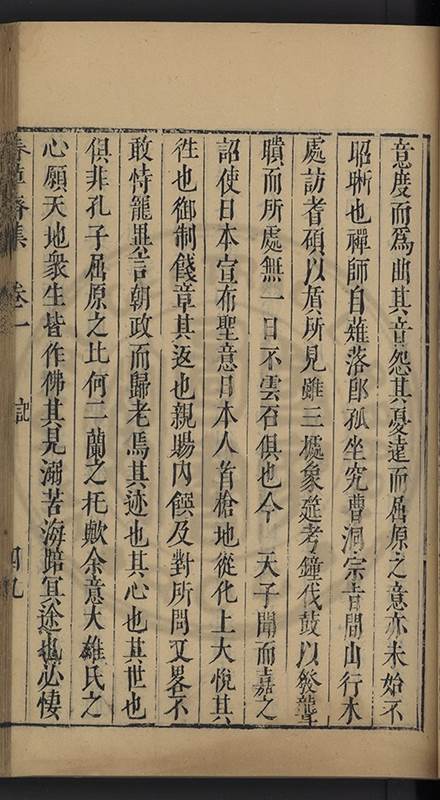 意度而爲曲其音怨其憂遠而屈原之意亦未始不
昭晰也禪師自薙落郎孤坐究曹洞宗旨間山行水
處訪耆碩以質所見雖三據象筵考鐘伐鼓以發聾
聵而所處無一日不雲石俱也今 天子聞而嘉之
詔使日本宣布聖意日本人首搶地從化上大悅其
徃也御制餞章其返也親賜内饌及對所問又畧不
敢恃寵異言朝政而歸老焉其迹也其心也其世也
俱非孔子屈原之比何二蘭之托歟余意大雄氏之
心願天地衆生皆作佛其見溺苦海歸冥途也必悽
集 卷一 記 四九